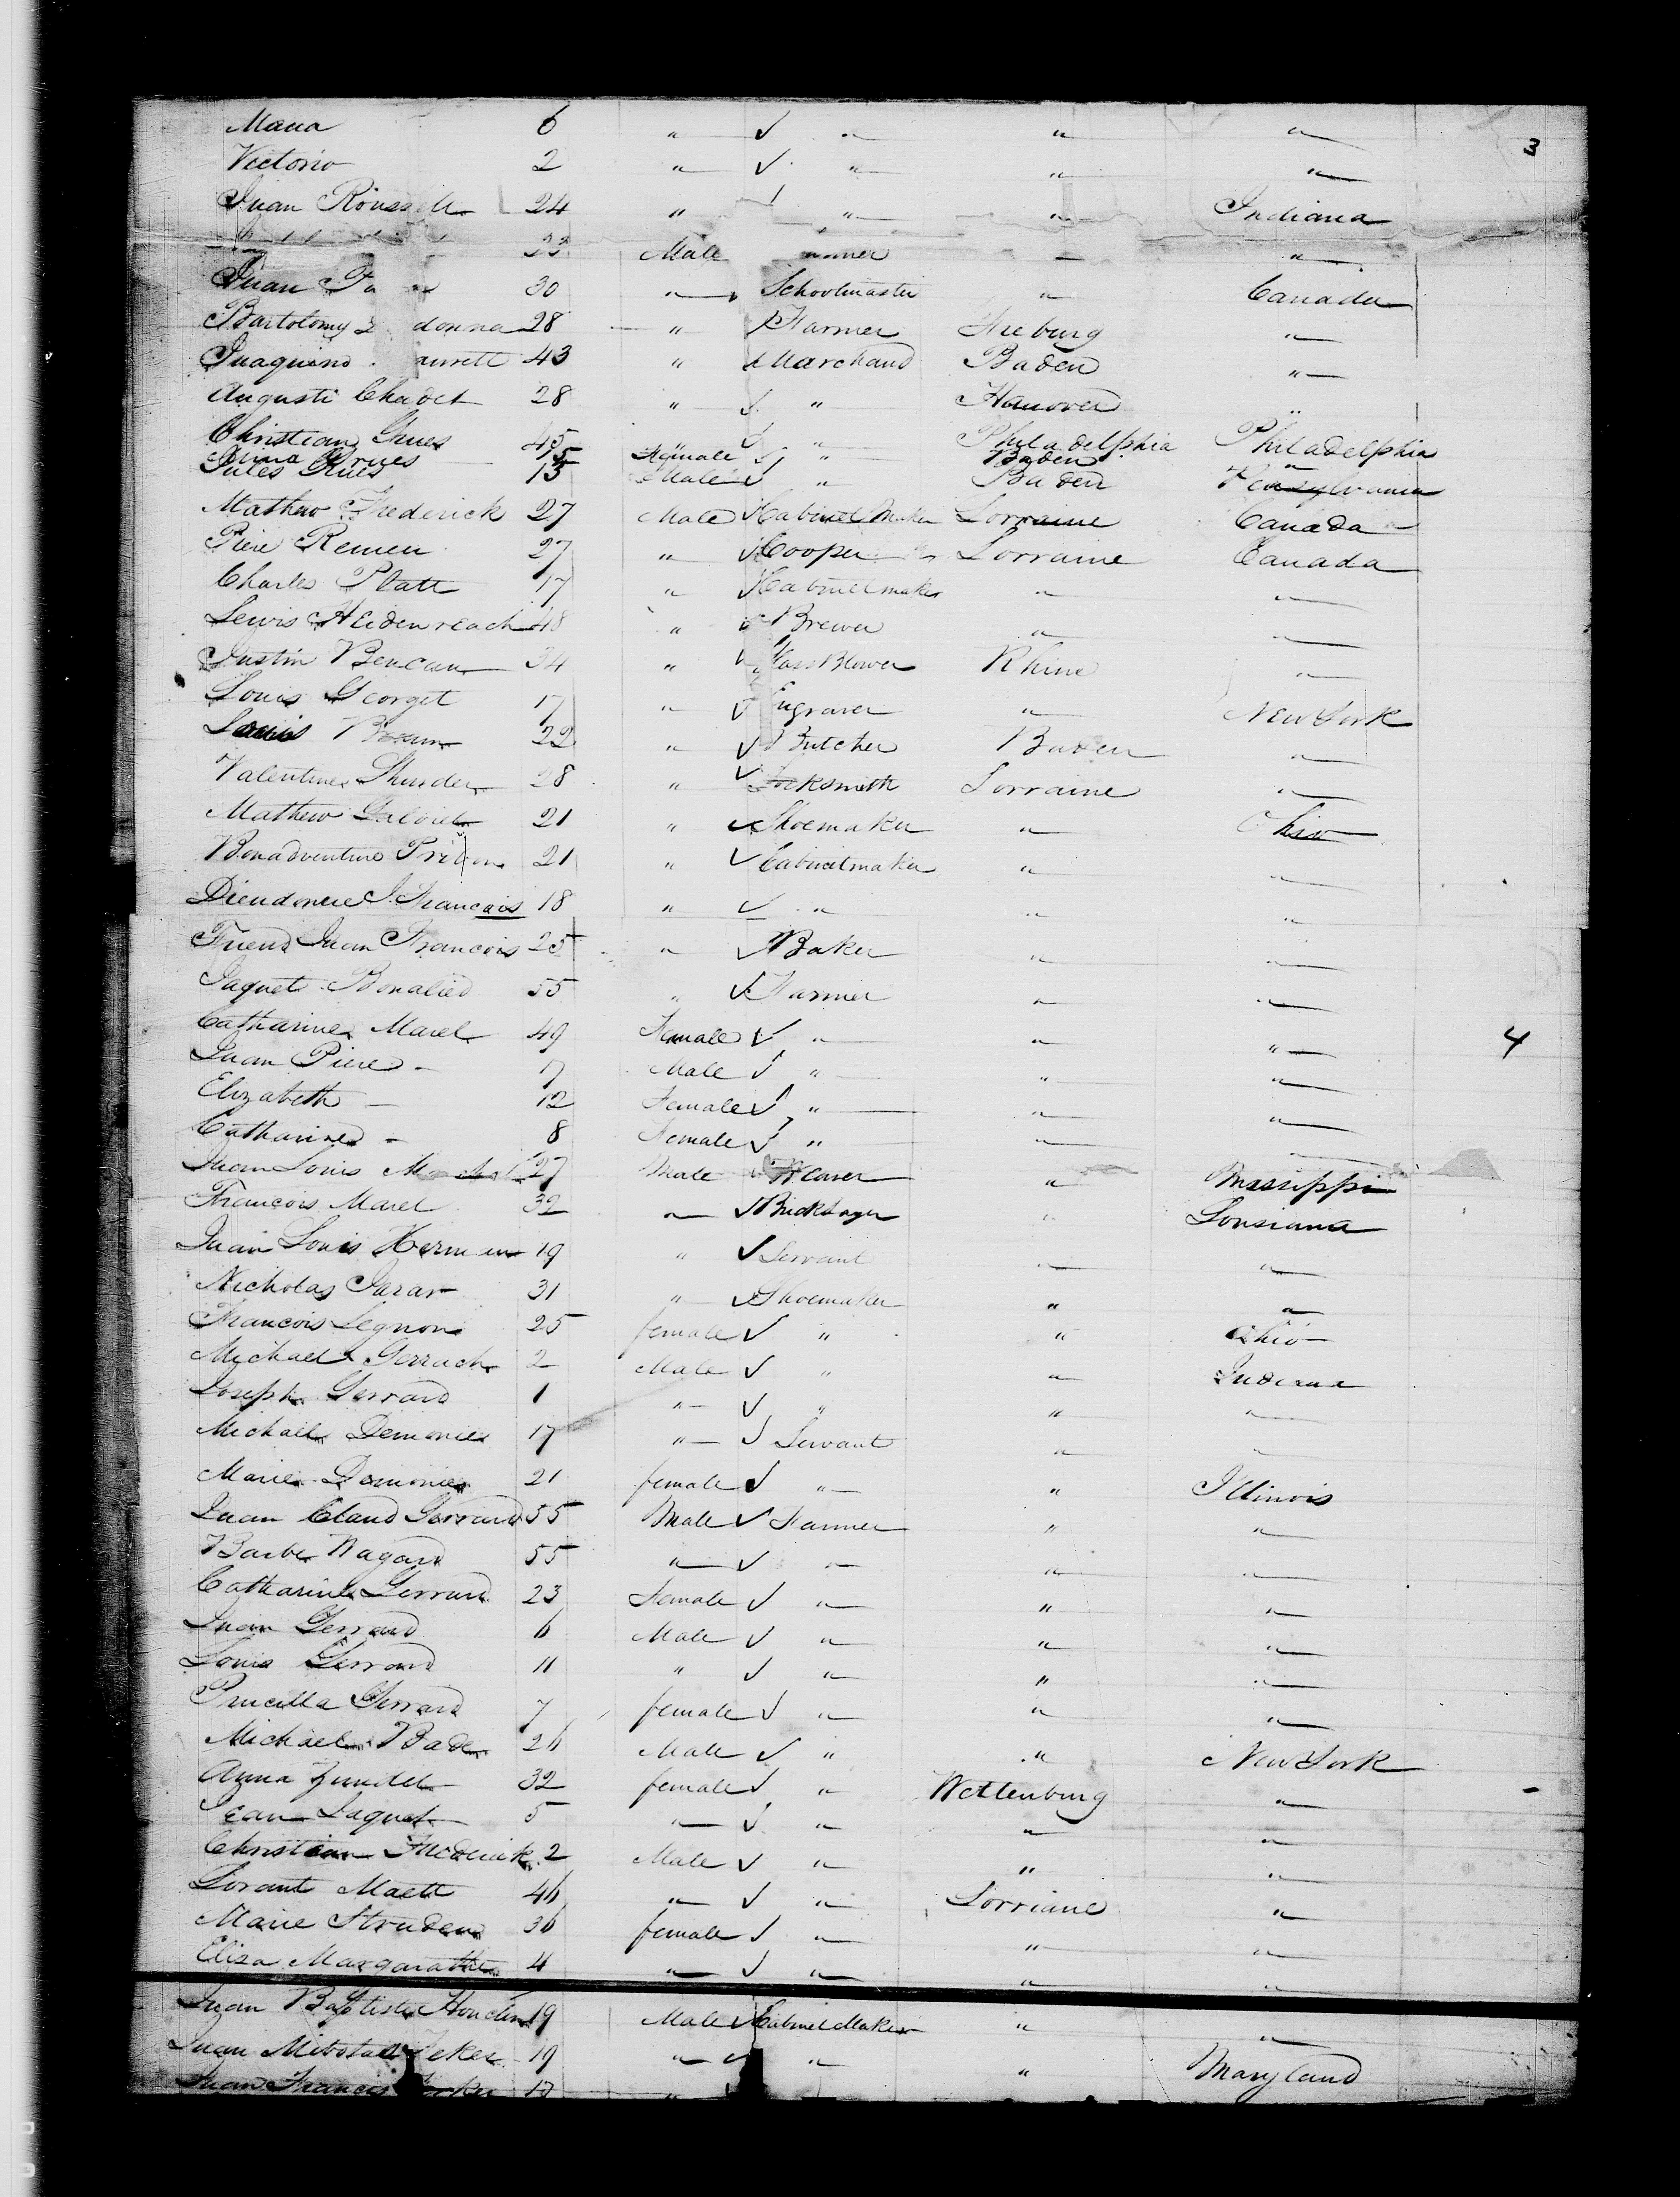 Maria 6 " ✓ " " "
Victorio 2 " ✓ " " " 3
Juan Roussell 24 " ✓ " " Indiana
33 Male "
Juan 30 " Schoolmaster " Canada
Bartolomy donna 28 " ✓ Farmer Freburg "
Juaquino 43 " ✓ Marchand Baden "
Augusti Chadet 28 " ✓ " Hanover "
Christian Grues 45 " ✓ " Philadelphia Philadelphia
Grues 5 Female ✓ " Baden "
Jules Grues 13 Male ✓ " Baden Pensylvania
Mathew Frederick 27 Male ✓ Cabinet Maker Lorraine Canada
Piere Remen 27 " ✓ Cooper Lorraine Canada
Charles Platt 17 " ✓ Cabinetmaker " "
Lewis Heidenreach 48 " ✓ Brewer " "
Justin Bencan 34 " ✓ Glass Blower Rhine "
Louis Georget 17 " ✓ Engraver " New York
Louis Braun 22 " ✓ Butcher Baden "
Valentine Shunder 28 " ✓ Locksmith Lorraine "
Mathew Gabriel 21 " ✓ Shoemaker " Ohio
Bonadventure 21 " ✓ Cabinetmaker " "
Dieudonne J. Francois 18 " ✓ " " "
Juan Francois 25 " ✓ Baker " "
Jaquet Bonalied 55 " ✓ Farmer " "
Catharine Marel 49 Female ✓ " " " 4
Juan Piere - 7 Male ✓ " " "
Elizabeth - 12 Female ✓ " " "
Catharine - 8 Female ✓ " " "
Juan Louis 27 Male ✓ Weaver " Missippi
Francois Marel 32 " ✓ Bricklayer " Lousiana
Juan Louis Hermien 19 " ✓ Servant " "
Nicholas Jarar 31 " ✓ Shoemaker " "
Francois Legnon 25 female ✓ " " Ohio
Michael Gerrach 2 Male ✓ " " Indiana
Joseph Gerrard 1 " ✓ " " "
Michael Demonie 17 " ✓ Servant " "
Marie Demonie 21 female ✓ " " Illinois
Juan Claud Gerrard 55 Male ✓ Farmer " "
Barbe Nagard 55 " ✓ " " "
Catharine Gerrard 23 Female ✓ " " "
Juan Gerrard 6 Male ✓ " " "
Louis Gerrard 11 " ✓ " " "
Pricilla Gerrard 7 female ✓ " " "
Michael Bade 26 Male ✓ " " New York
Anna Zundel 32 female ✓ " Wettenburg "
Jean Jaquet 5 " ✓ " " "
Christian Frederick 2 Male ✓ " " "
Lorant Maett 46 " ✓ " Lorriane "
Marie Struden 36 female ✓ " " "
Elisa Margarathe 4 " ✓ " " "
Juan Baptiste Houdin 19 Male ✓ Cabinet Maker " "
Juan Jeker 19 " ✓ " " Maryland
Juan Francis 17 "